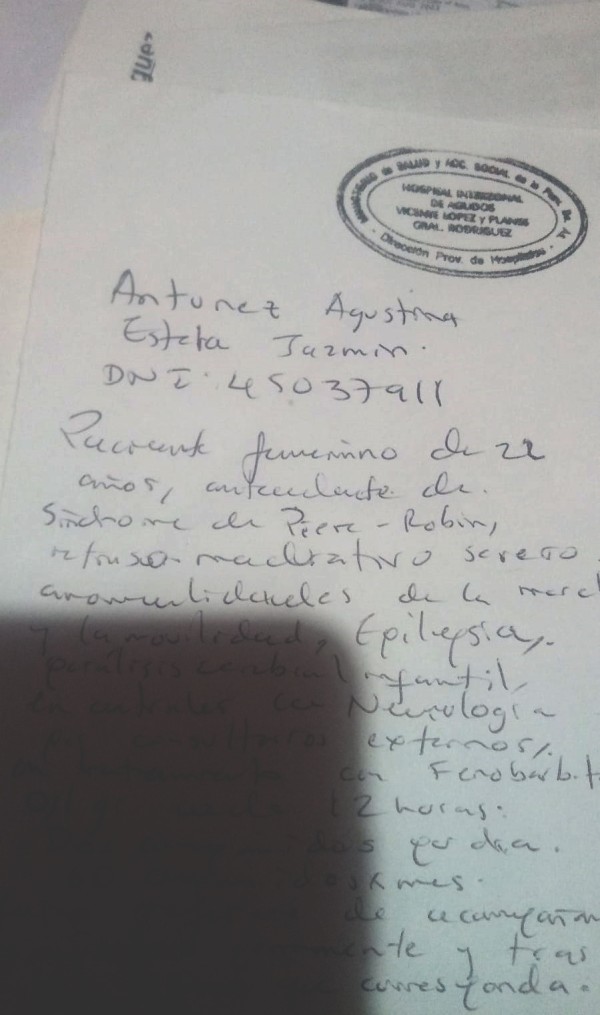 MINISTERIO de SALUD y ACC. SOCIAL de la Prov. Bs. As.
HOSPITAL INTERZONAL
DE AGUDOS
VICENTE LOPEZ y PLANES
GRAL. RODRIGUEZ
Dirección Prov. de Hospitales
Antunez Agustina
Estela Jazmin.
DNI: 45037911
Paciente femenino de 22
años, antecedente de
Síndrome de Pierre-Robin,
retraso madurativo severo
anormalidades de la march
y la movilidad, Epilepsia,
parálisis cerebral infantil,
en controles con Neurología
consultorios externos,
tratamiento con Fenobarbit
cada 12 horas.
por dia.
mes.
de acompañam
y tras
corresponda.